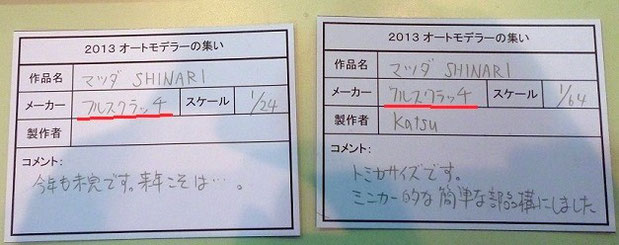 2013 オートモデラーの集い
作品名 マツダ SHINARI
メーカー フルスクラッチ スケール 1/24
製作者
コメント:
今年も未完です。来年こそは…。
2013 オートモデラーの集い
作品名 マツダ SHINARI
メーカー フルスクラッチ スケール 1/64
製作者 Katsu
コメント:
トミカサイズです。
ミニカー的な簡単な部品構にしました